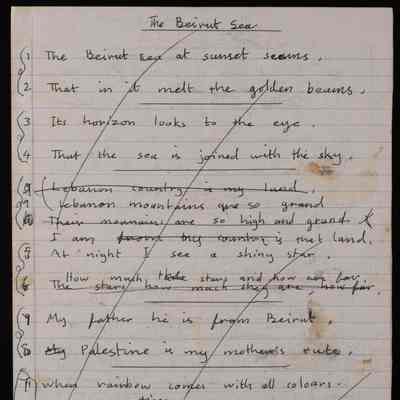 The Beirut Sea
(1 The Beirut sea at sunset seems,
(2 That in it melt the golden beams,
(3 Its horizon looks to the eye.
(4 That the sea is joined with the sky.
Lebanon country is my land,
Lebanon mountains are so grand
Their mountains are so high and grand
I am country is that land.
At night I see a shiny star.
How much stars and how are far,
The stars how much they are how far,
My father he is from Beirut,
My Palestine is my mother's
(11 When rainbow comes with all colours.